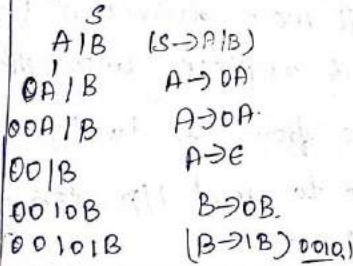 S
A1B (S→A1B)
0A1B A→0A
00A1B A→0A.
001B A→ϵ
0010B B→0B.
00101B (B→1B) 00101